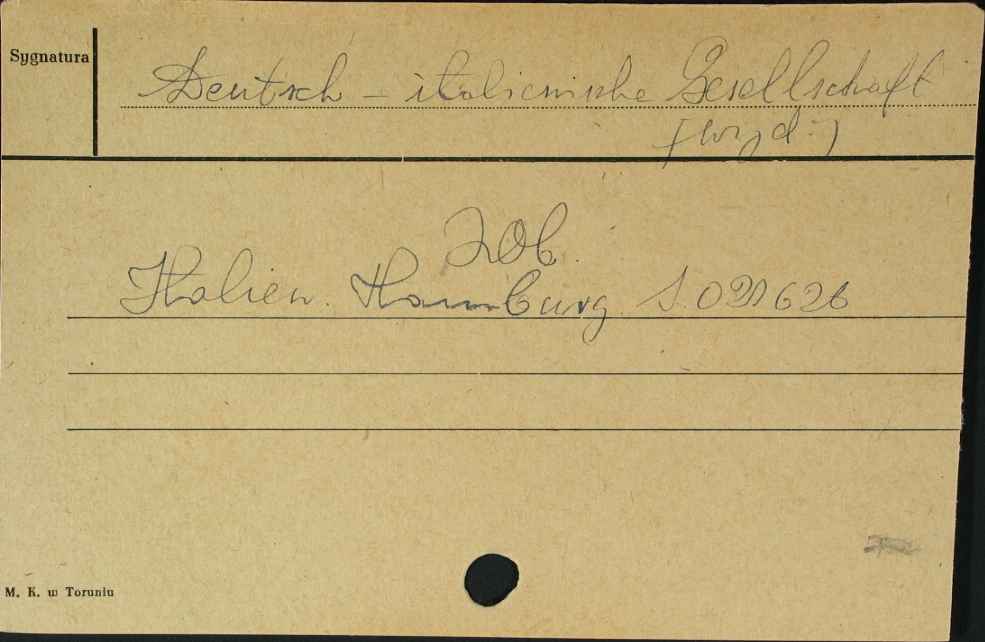 Sygnatura
Deutsch - italienische Gesellschaft
(wyd.)
Zob.
Italien. Hamburg. S. 021626
M. K. w Toruniu